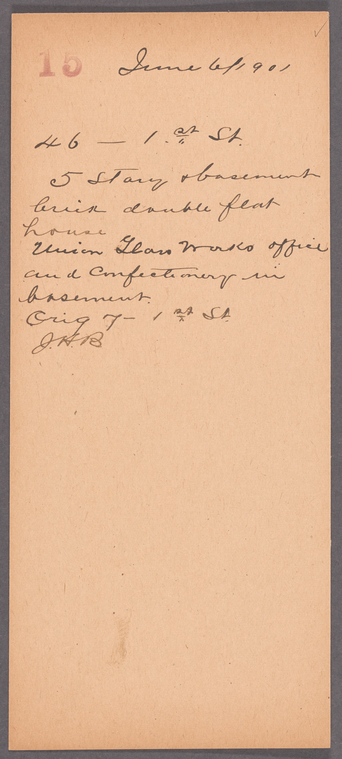 15 June 6/1901
46 — 1.st St.
5 Story & basement
brick double flat
house
Union Glass Works office
and Confectionery in
basement.
Orig 7 - 1st St.
J.H.B